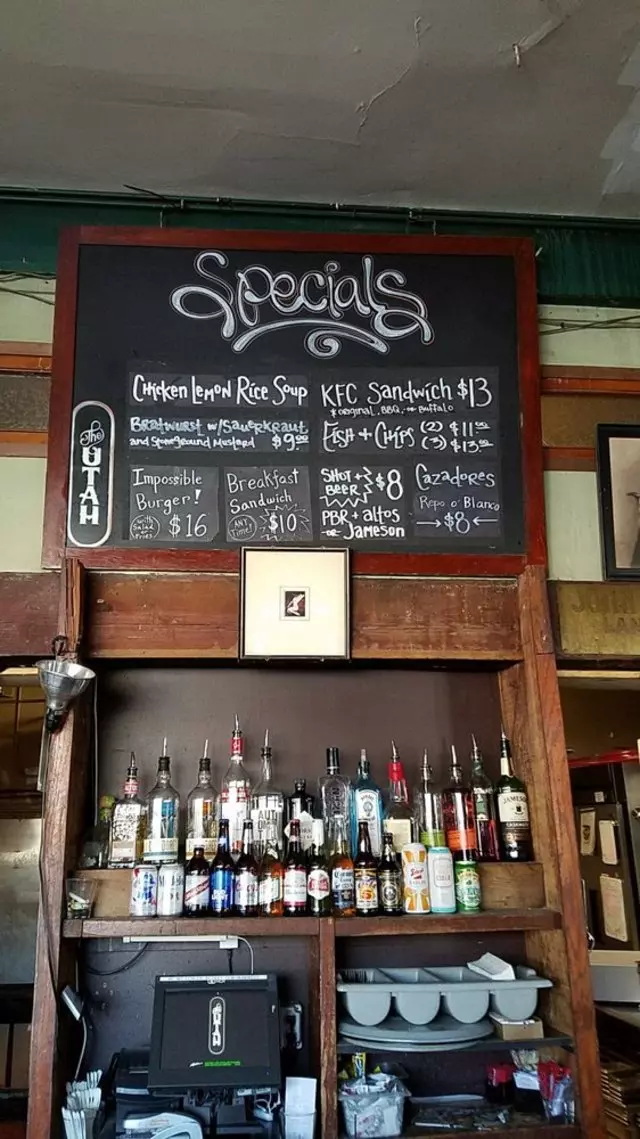 Specials
The
UTAH
Chicken Lemon Rice Soup
Bratwurst w/Sauerkraut
and Stoneground Mustard $9.00
Impossible
Burger!
with
Salad
or
Fries
$16
Breakfast
Sandwich
ANY
Time!
$10
KFC Sandwich $13
* original, BBQ, or Buffalo
Fish + Chips (2) $11
(3) $13
SHOT +
BEER
$8
PBR + altos
or Jameson
Cazadores
Repo o' Blanco
→$8←
JAMESON
The
UTAH